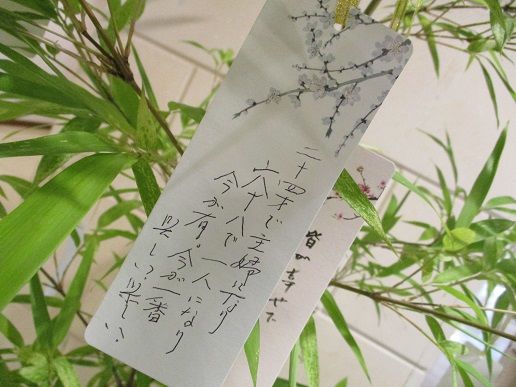 二十四才で主婦になり
六十八で一人になり
今が有る。今が一番
楽しい楽しい
皆が幸せで